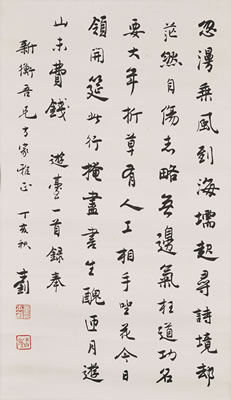 忽漫乘風到海壖起尋詩境却
茫然自傷志略無邊氣枉道功名
要大年折草有人工相手坐花今日
領開筵此行掩盡書生醜匝月遊
山未費錢 遊臺一首錄奉
新衡吾兄方家雅正 丁亥秋 士釗